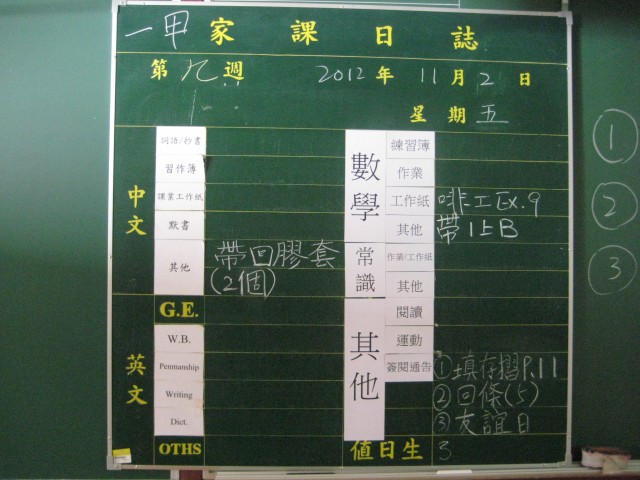 一甲家課日誌
第九週 2012年11月2日
星期五
中文
詞語/抄書
習作簿
課業工作紙
默書
其他
帶回膠套
(2個)
英文
G.E.
W.B.
Penmanship
Writing
Dict.
OTHS
數學
練習簿
作業
工作紙
啡工Ex.9
其他
帶1上B
常識
作業/工作紙
其他
其他
閱讀
運動
簽閱通告
①填存摺P.11
②回條(5)
③友誼日
值日生 3
①
②
③